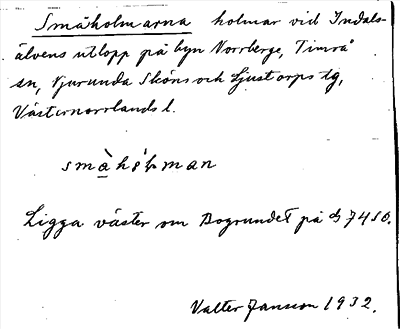 Småholmarna holmar vid Indals-
älvens utlopp på byn Norrberge, Timrå
sn, Njurunda Sköns och Ljustorps tg,
Västernorrlands l.
Ligga väster om Bogrundet på
Valter Jansson 1932.